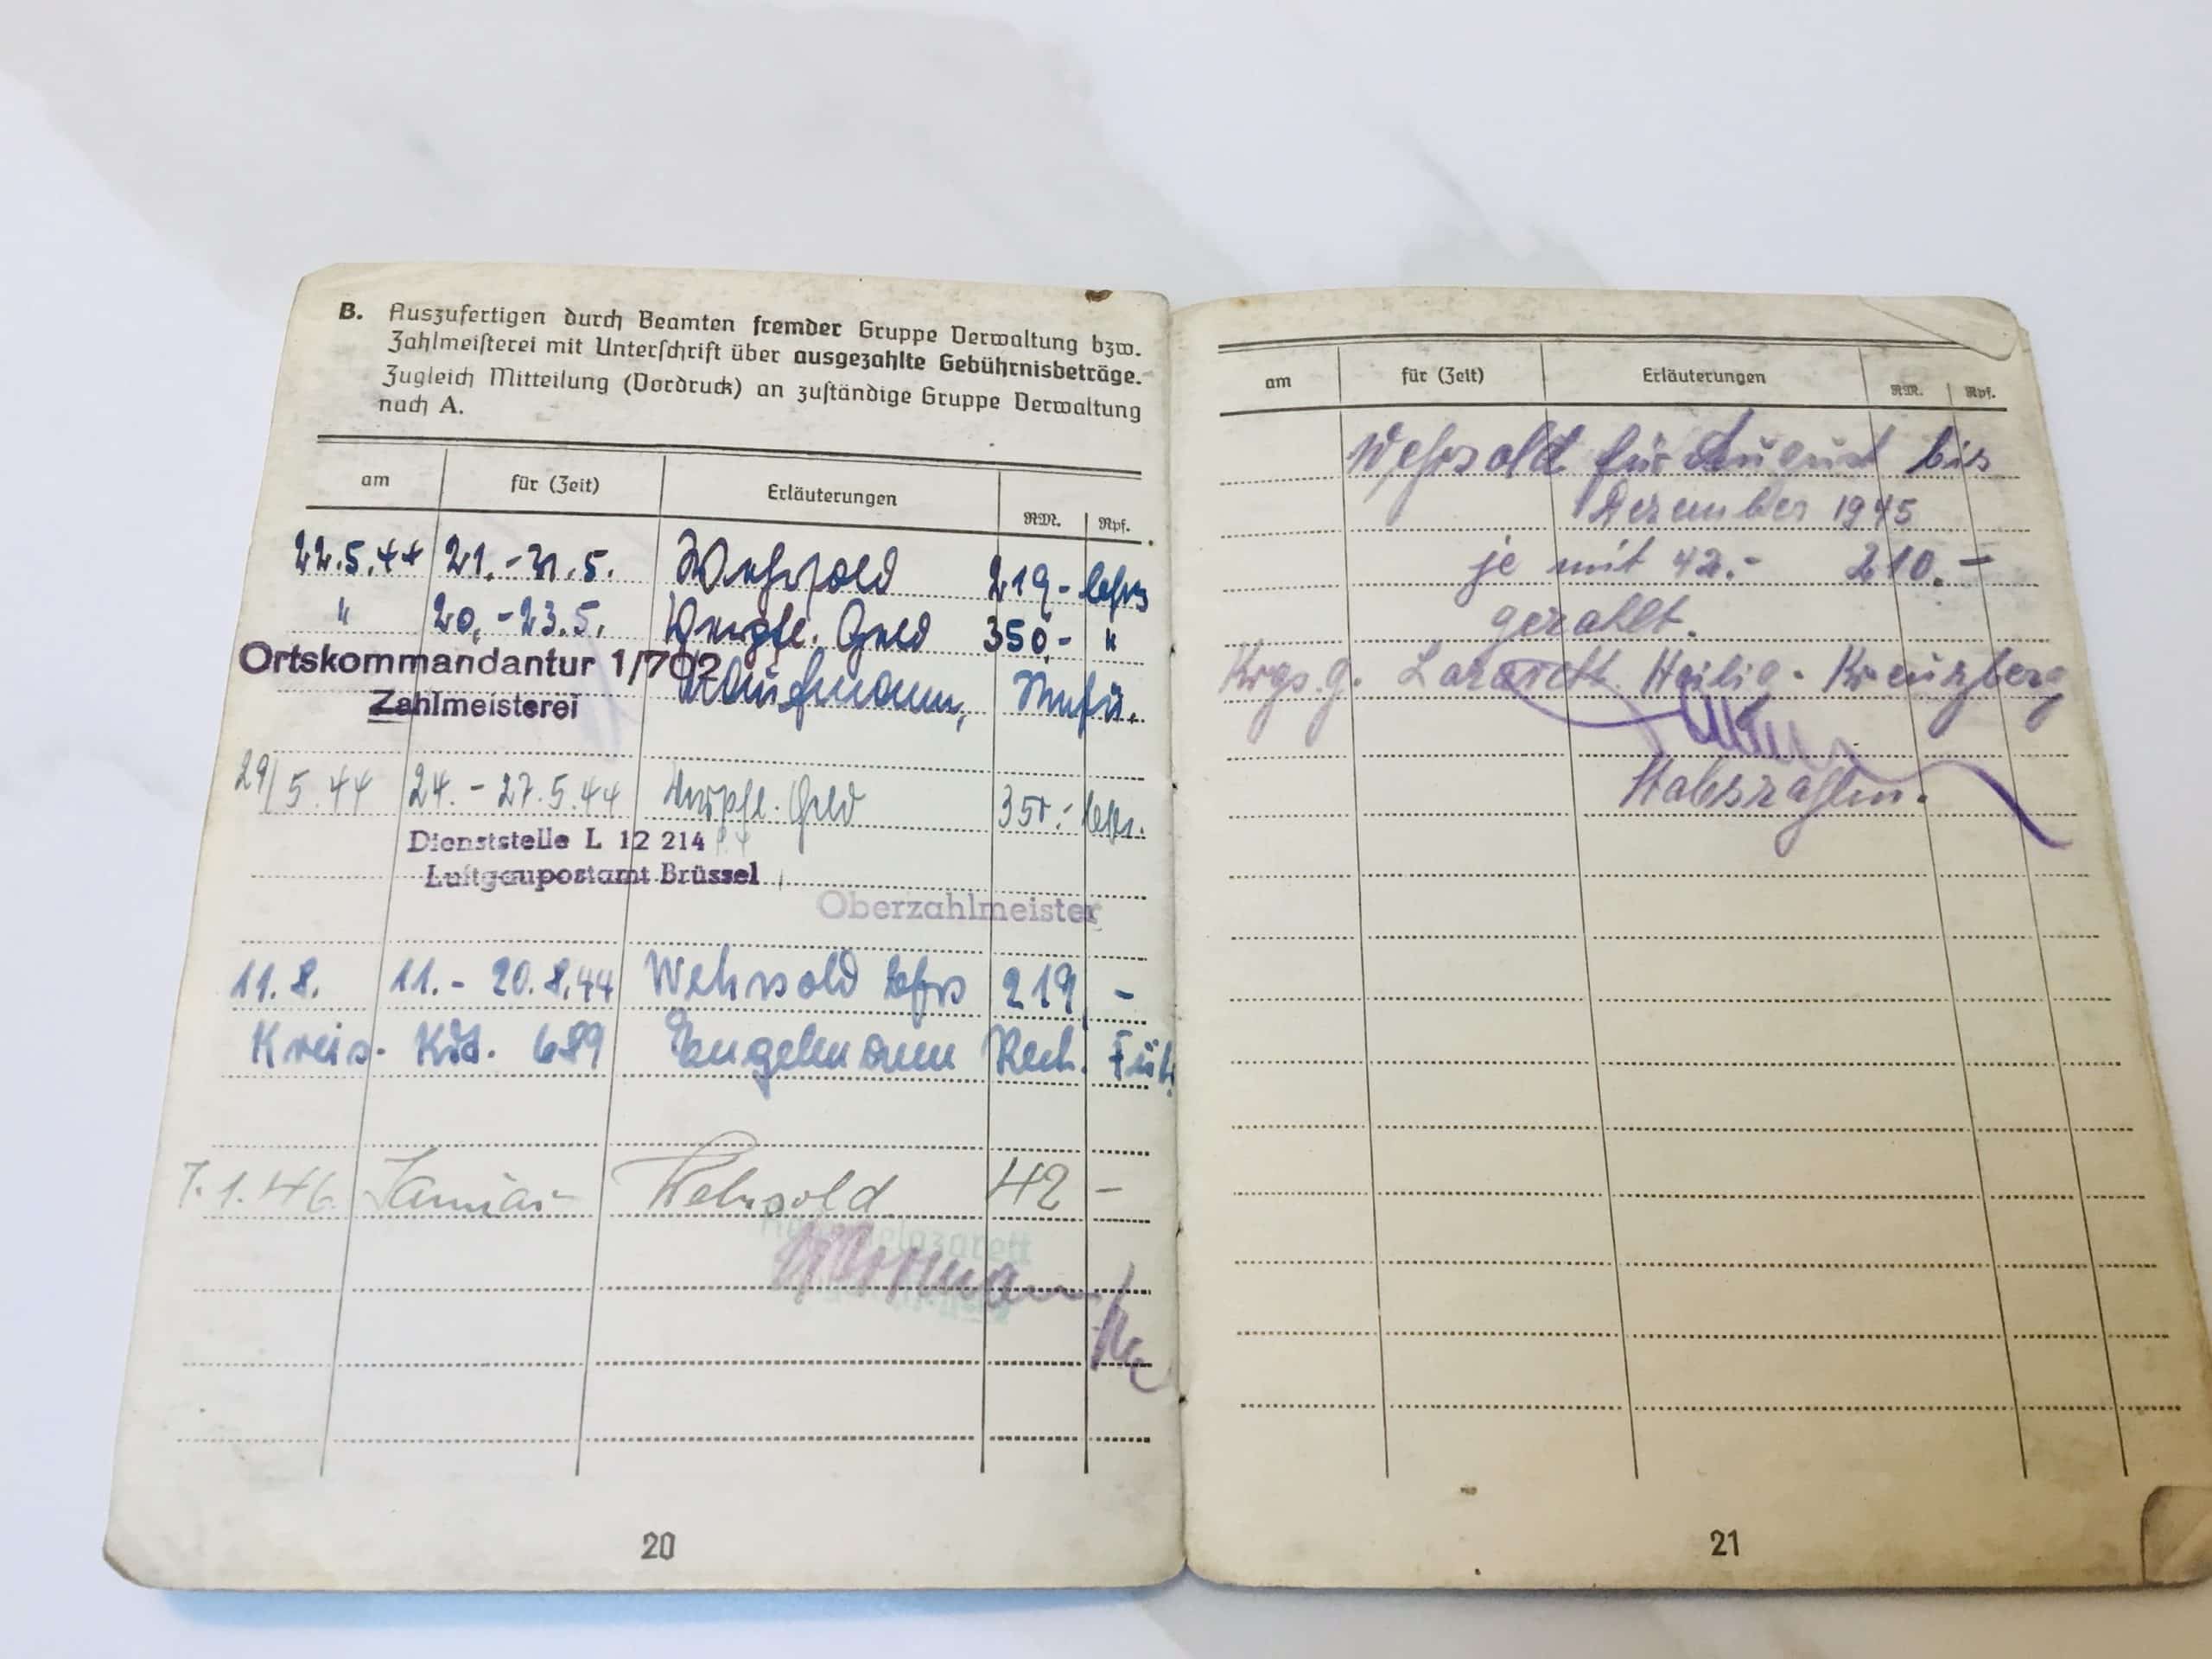 B. Auszufertigen durch Beamten fremder Gruppe Verwaltung bzw.
Zahlmeisterei mit Unterschrift über ausgezahlte Gebührnisbeträge.
Zugleich Mitteilung (Vordruck) an zuständige Gruppe Verwaltung
nach A.
am für (Zeit) Erläuterungen RM. Rpf.
22.5.44 21.-31.5. Wehrsold 219.- bfrs
" 20.-23.5. Verpfl. Geld 350.- "
Ortskommandantur 1/702
Zahlmeisterei
Kaufmann,
29/5.44 24.-27.5.44 Verpfl. Geld 350.- bfrs.
Dienststelle L 12 214
Luftgaupostamt Brüssel
Oberzahlmeister
11.8. 11.- 20.8.44 Wehrsold bfrs 219,-
Kreis- Kdt. 689 Engelmann Rech. Füh
7.1.46 Januar Wehrsold 42 -
20
am für (Zeit) Erläuterungen RM. Rpf.
Wehrsold für August bis
Dezember 1945
je mit 42.- 210.-
gezahlt.
Krgs.g. Lazarett Heilig-Kreuzberg
Stabszahlm.
21